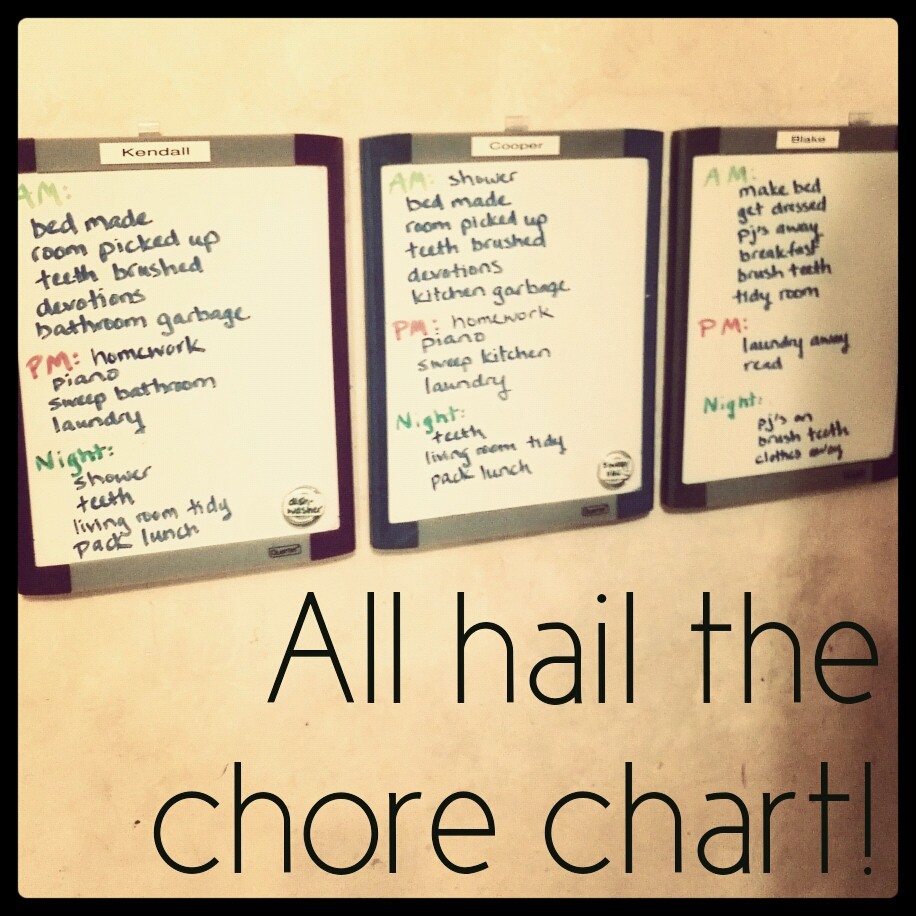 Kendall
AM:
bed made
room picked up
teeth brushed
devotions
bathroom garbage
PM: homework
piano
sweep bathroom
laundry
Night:
shower
teeth
living room tidy
pack lunch
dish-
washer
Quartet
Cooper
AM: shower
bed made
room picked up
teeth brushed
devotions
kitchen garbage
PM: homework
piano
sweep kitchen
laundry
Night:
teeth
living room tidy
pack lunch
Quartet
Blake
AM:
make bed
get dressed
pj's away
breakfast
brush teeth
tidy room
PM:
laundry away
read
Night:
pj's on
brush teeth
clothes away
All hail the
chore chart!